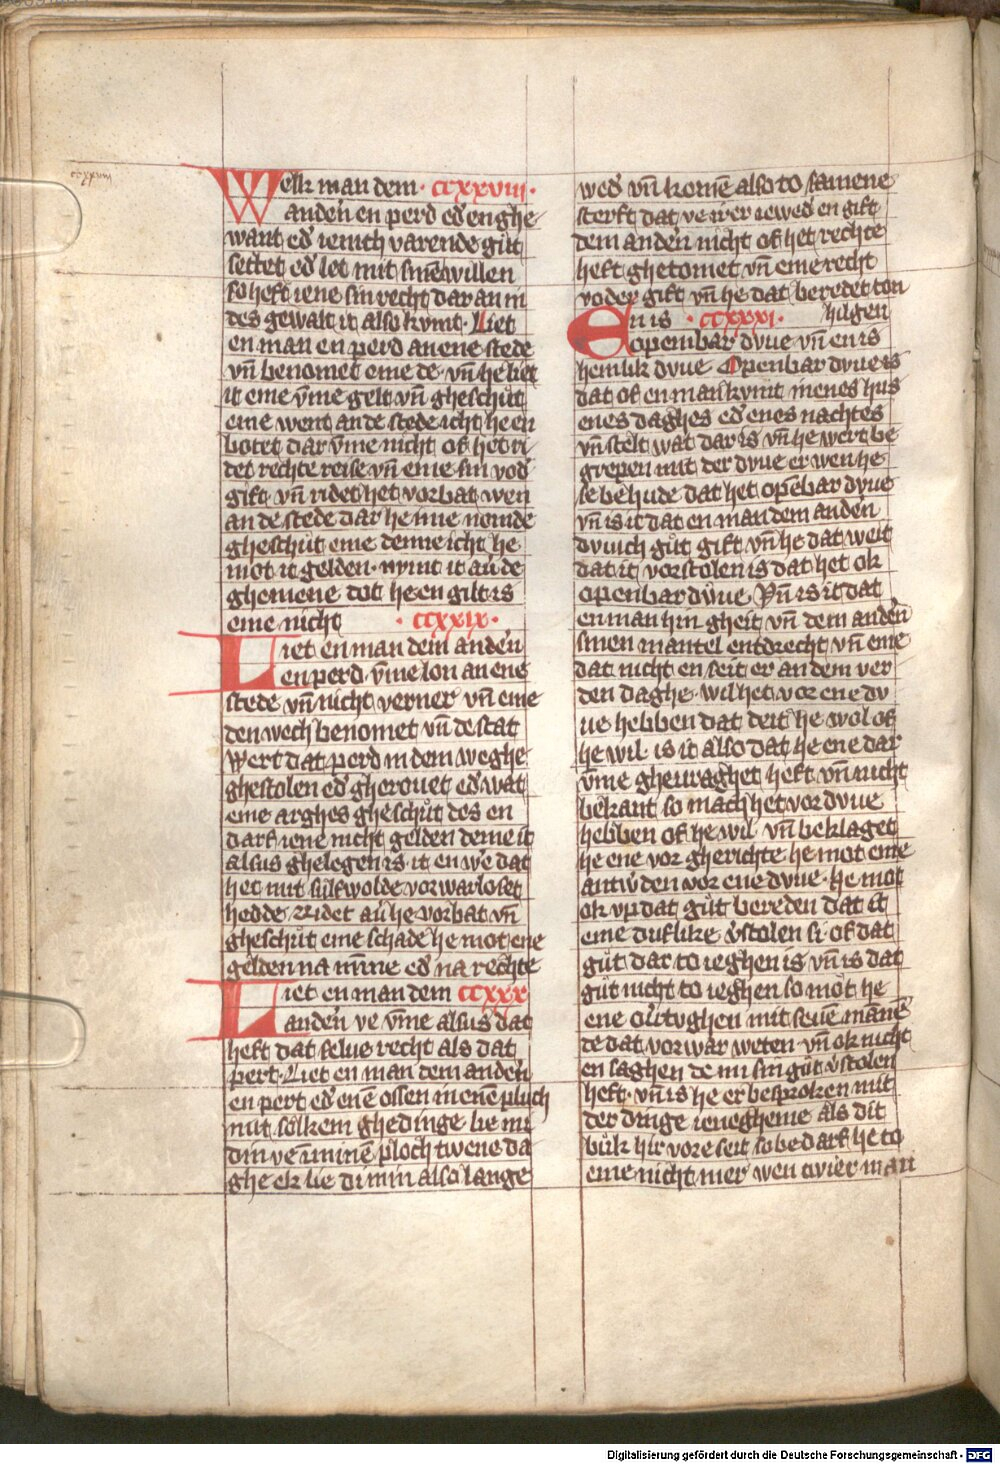 ccxxviii
Welk man dem · ccxxviii ·
anden̄ en perd ed̓ en ghe
want ed̓ ienich varende gůt
settet ed̓ let mit sinē willen
so heft iene sin recht dar an in
des gewalt it also kvmt · Liet
en man en perd an ene stede
vn̄ benomet eme de · vn̄ he biet
it eme v̄me gelt vn̄ gheschůt
eme went an de stede icht he en
botet dar v̄me nicht of het ri
det rechte reise vn̄ em ie sin vod̓
gift vn̄ ridet het vorbat wen
an de stede dar he
gheschůt eme denne icht he
mot it gelden · nymt it au̓ de
ghemene dot he en gilt is
eme nicht · ccxxix ·
Liet en man dem anden̄
en perd v̄me lon an ene
stede vn̄ nicht verner vn̄ eme
den wech benomet vn̄ de stat
Wert dat perd in dem weghe
ghestolen ed̓ gherouet ed̓ wat
eme arghes gheschůt des en
darf iene nicht gelden deme it
alsus ghelegen is · it en we̓ dat
het mit sulf wolde vorwarloset
hedde · ridet au̓ he vorbat vn̄
gheschůt eme schade he mot ene
gelden na minne ed̓ na rechte
Liet en man dem ccxxx
anden̄ ve v̄me alsus dat
heft dat selue recht als dat
pert · Liet en man dem anden̄
en pert ed̓ enē ossen in enē pluch
mit solkem ghedinge · lie mi
din ve in minē ploch twene da
ghe ek lie di min also lange
wed̓ vn̄ komē also to samene
sterft dat ve iewed̓ en gilt
dem anden̄ nicht of het rechte
heft ghetomet vn̄ eme recht
voder gift vn̄ he dat beredet ton
En is · ccxxxi · hilgen
openbar dvue vn̄ en is
hemlik dvue Openbar dvue is
dat of en man kvmt in enes hus
enes daghes ed̓ enes nachtes
vn̄ stelt wat dar is vn̄ he wert be
grepen mit der dvue er wen he
se behude dat het opēbar dvue
vn̄ is it dat en man dem anden̄
dvuich gůt gift vn̄ he dat weit
dat it vorstolen is dat het ok
openbar dvue Vn̄ is it dat
en man hin gheit vn̄ dem anden̄
sinen mantel entdrecht vn̄ eme
dat nicht en seit er an dem ver
den daghe · wil het vor ene dv
ue hebben dat deit he wol of
he wil · is it also dat he ene dar
v̄me ghevraghet heft vn̄ nicht
bekant so mach het vor dvue
hebben of he wil · vn̄ beklaget
he ene vor gherichte he mot eme
antw̓den vor ene dvue · he mot
ok vp dat gůt bereden dat it
eme duflike v̓stolen si of dat
gůt dar to ieghen is vn̄ is dat
gůt nicht to ieghen so mot he
ene ou̓tvghen mit seuē mannē
de dat vorwar weten · vn̄ ok nicht
en saghen de im sin gůt v̓stolen
heft · vn̄ is he er besproken mit
der dinge ienegheme als dit
bůk hir vore seit so bedarf he to
eme nicht mer wen twier man
Digitalisierung gefördert durch die Deutsche Forschungsgemeinschaft - DFG